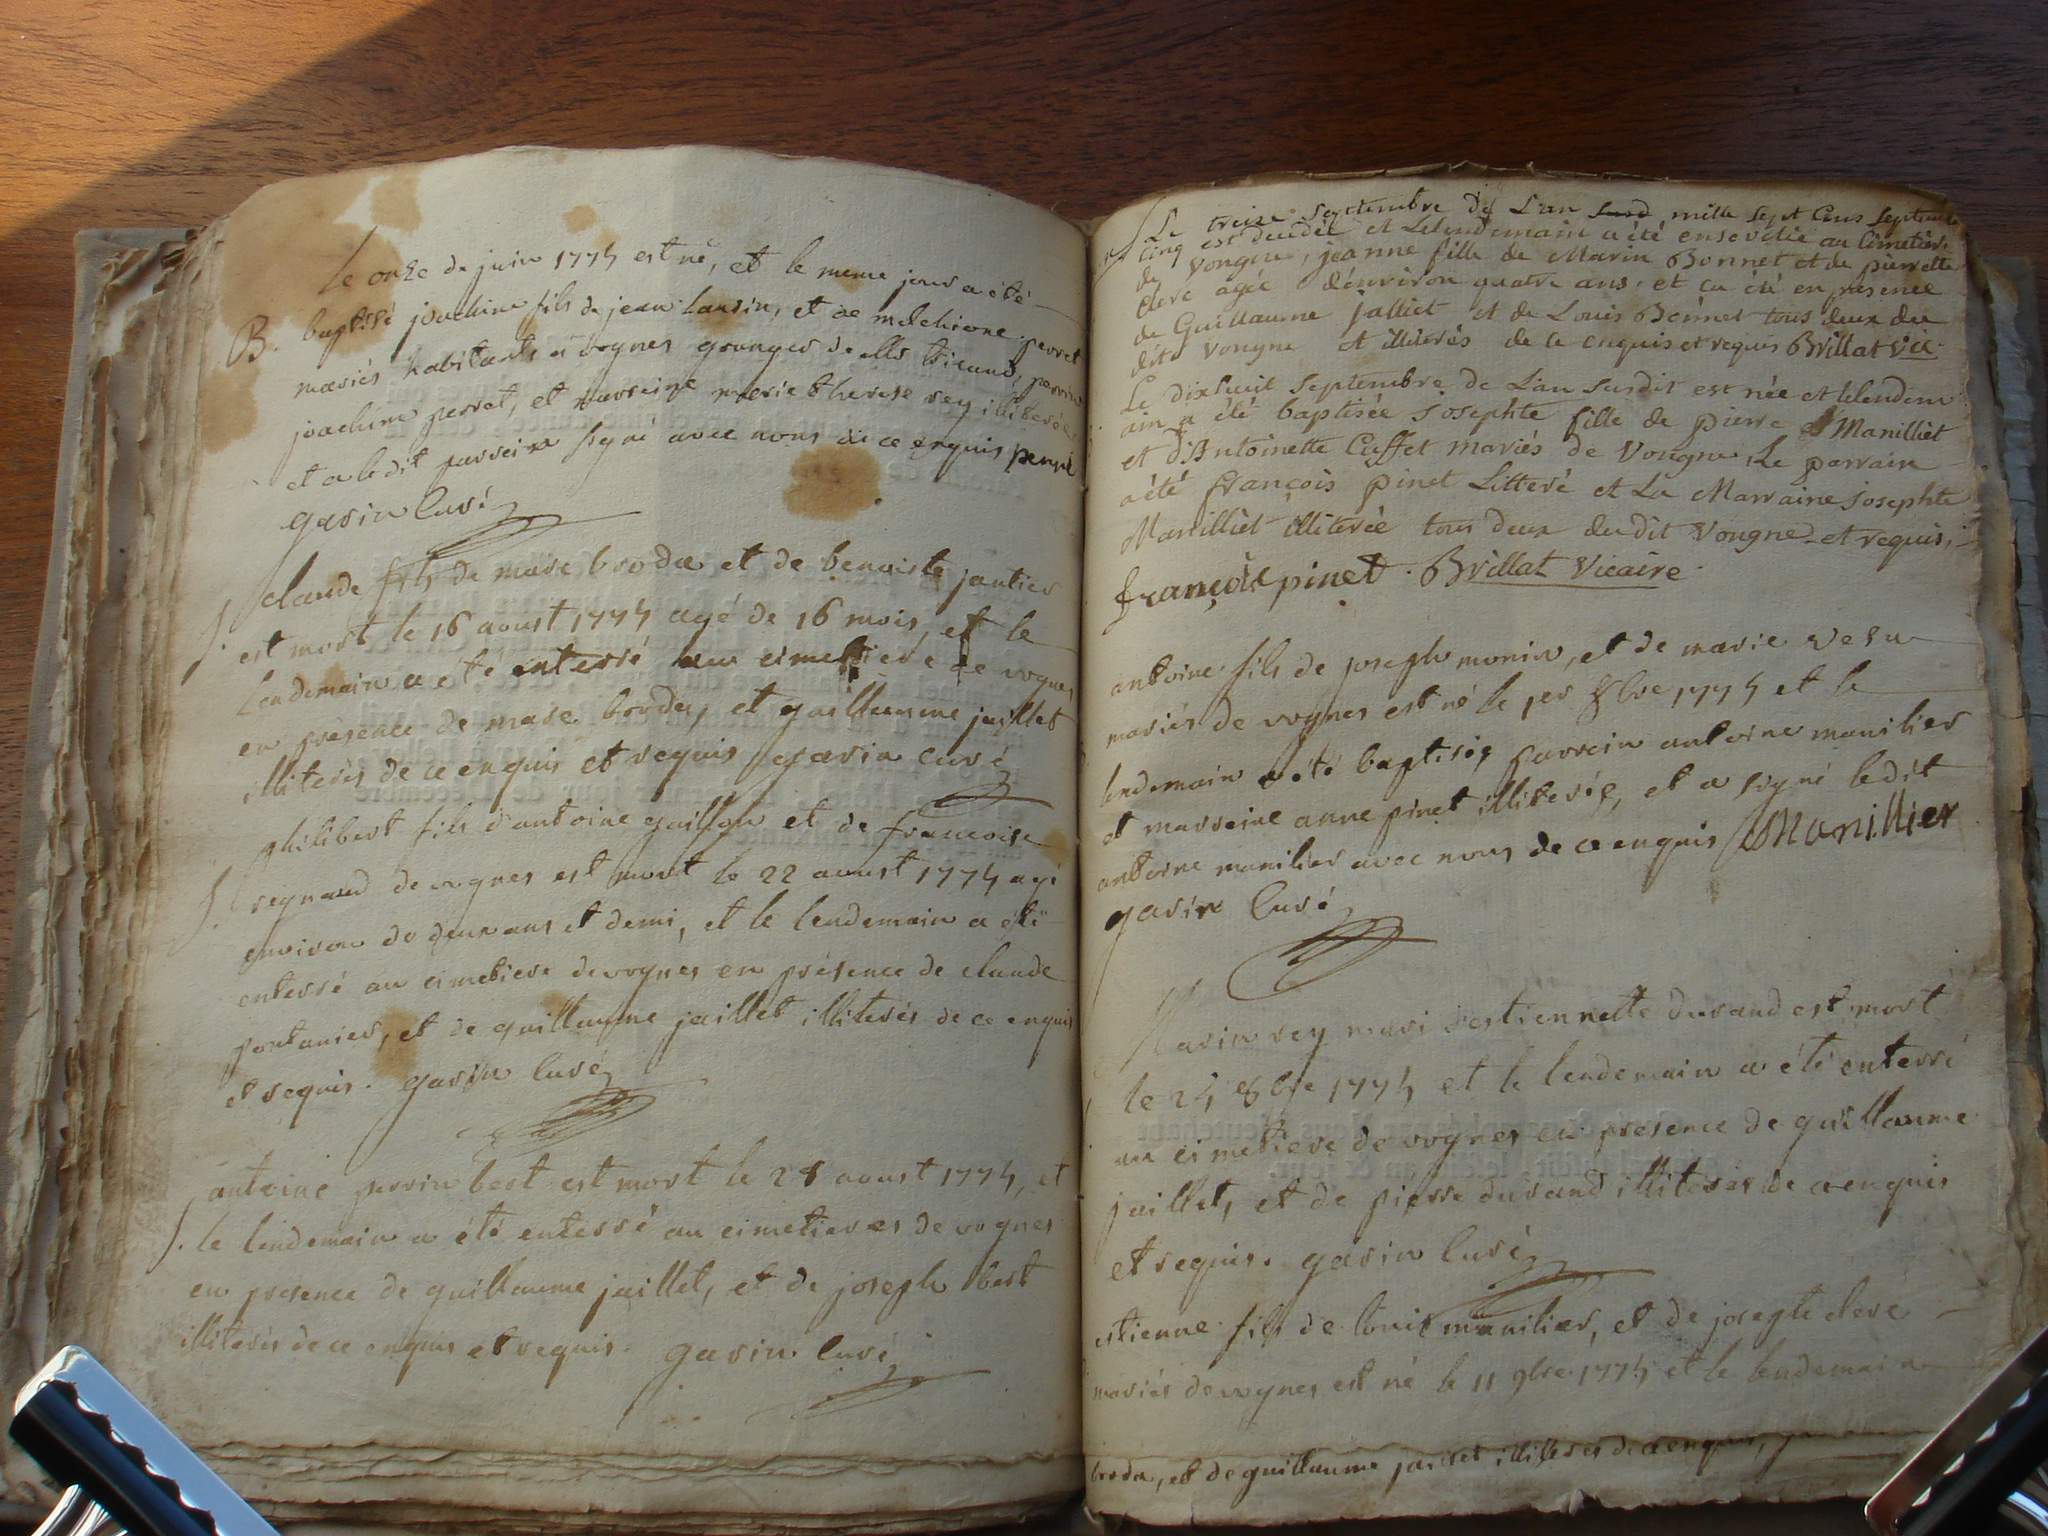 le onze de juin 1775 est né, et le meme jour a été
B. baptisé joachim fils de jean lansin, et de melchione perret
mariés habitants à vognes granger de
joachim perret, et marreine marie therese rey illiterée
et a le dit parrein signé avec nous de ce enquis perret
garin curé
claude fils de marc broda et de benoiste jantier
S. est mort le 16 aoust 1775 agé de 16 mois, et le
lendemain a été enterré au cimetiere de vognes
en présence de marc broda, et guillaume jaillet
illiterés de ce enquis et requis garin curé
philibert fils d'antoine et de francoise
S. reynaud de vognes est mort le 22 aoust 1775 agé
environ de deux ans et demi, et le lendemain a été
enterré au cimetiere de vognes en présence de claude
pontanier, et de guillaume jaillet illiterés de ce enquis
et requis. garin curé
antoine perrin bert est mort le 28 aoust 1775, et
S. le lendemain a été enterré au cimetieres de vognes
en presence de guillaume jaillet, et de joseph bert
illiterés de ce enquis et requis. garin curé
Le treize Septembre de L'an mille Sept Cens Septante
Cinq est decedée et Lelendemain a été ensevelie au Cimetiere
de Vongne, jeanne fille de Marin Bonnet et de pierrette
clerc agée d'environ quatre ans. et ca été en presence
de Guillaume jalliet et de Louis Bonnet tous deux du
dite Vongne et illiterés de ce enquis et requis Brillat Vic.
Le dixhuit Septembre de L'an Susdit est née et lelendem
ain a été baptisée Josephte fille de pierre Manilliet
et d'Antoinette Cuffet mariés de Vongne, Le parrain
a été François pinet Litteré et La Marraine Josephte
Manilliet illiterée tous deux dudit Vongne et requis,
françois pinet. Brillat Vicaire.
antoine fils de joseph monin, et de marie
mariés de vognes est né le 1er 8bre 1775 et le
lendemain a été baptisé, parrein antoine manilier
et marreine anne pinet illiterée, et a signé ledit
antoine manilier avec nous de ce enquis Manillier
garin curé
Marin rey mari d'estiennette durand est mort
le 25 8bre 1775 et le lendemain a été enterré
au cimetiere de vognes en presence de guillaume
jaillet, et de pierre durand illiterés de ce enquis
et requis. garin curé
estienne fils de louis manilier, et de josephte clerc
mariés de vognes est né le 11 9bre 1775 et le lendemain
broda, et de guillaume jaillet illiterés de ce enquis,